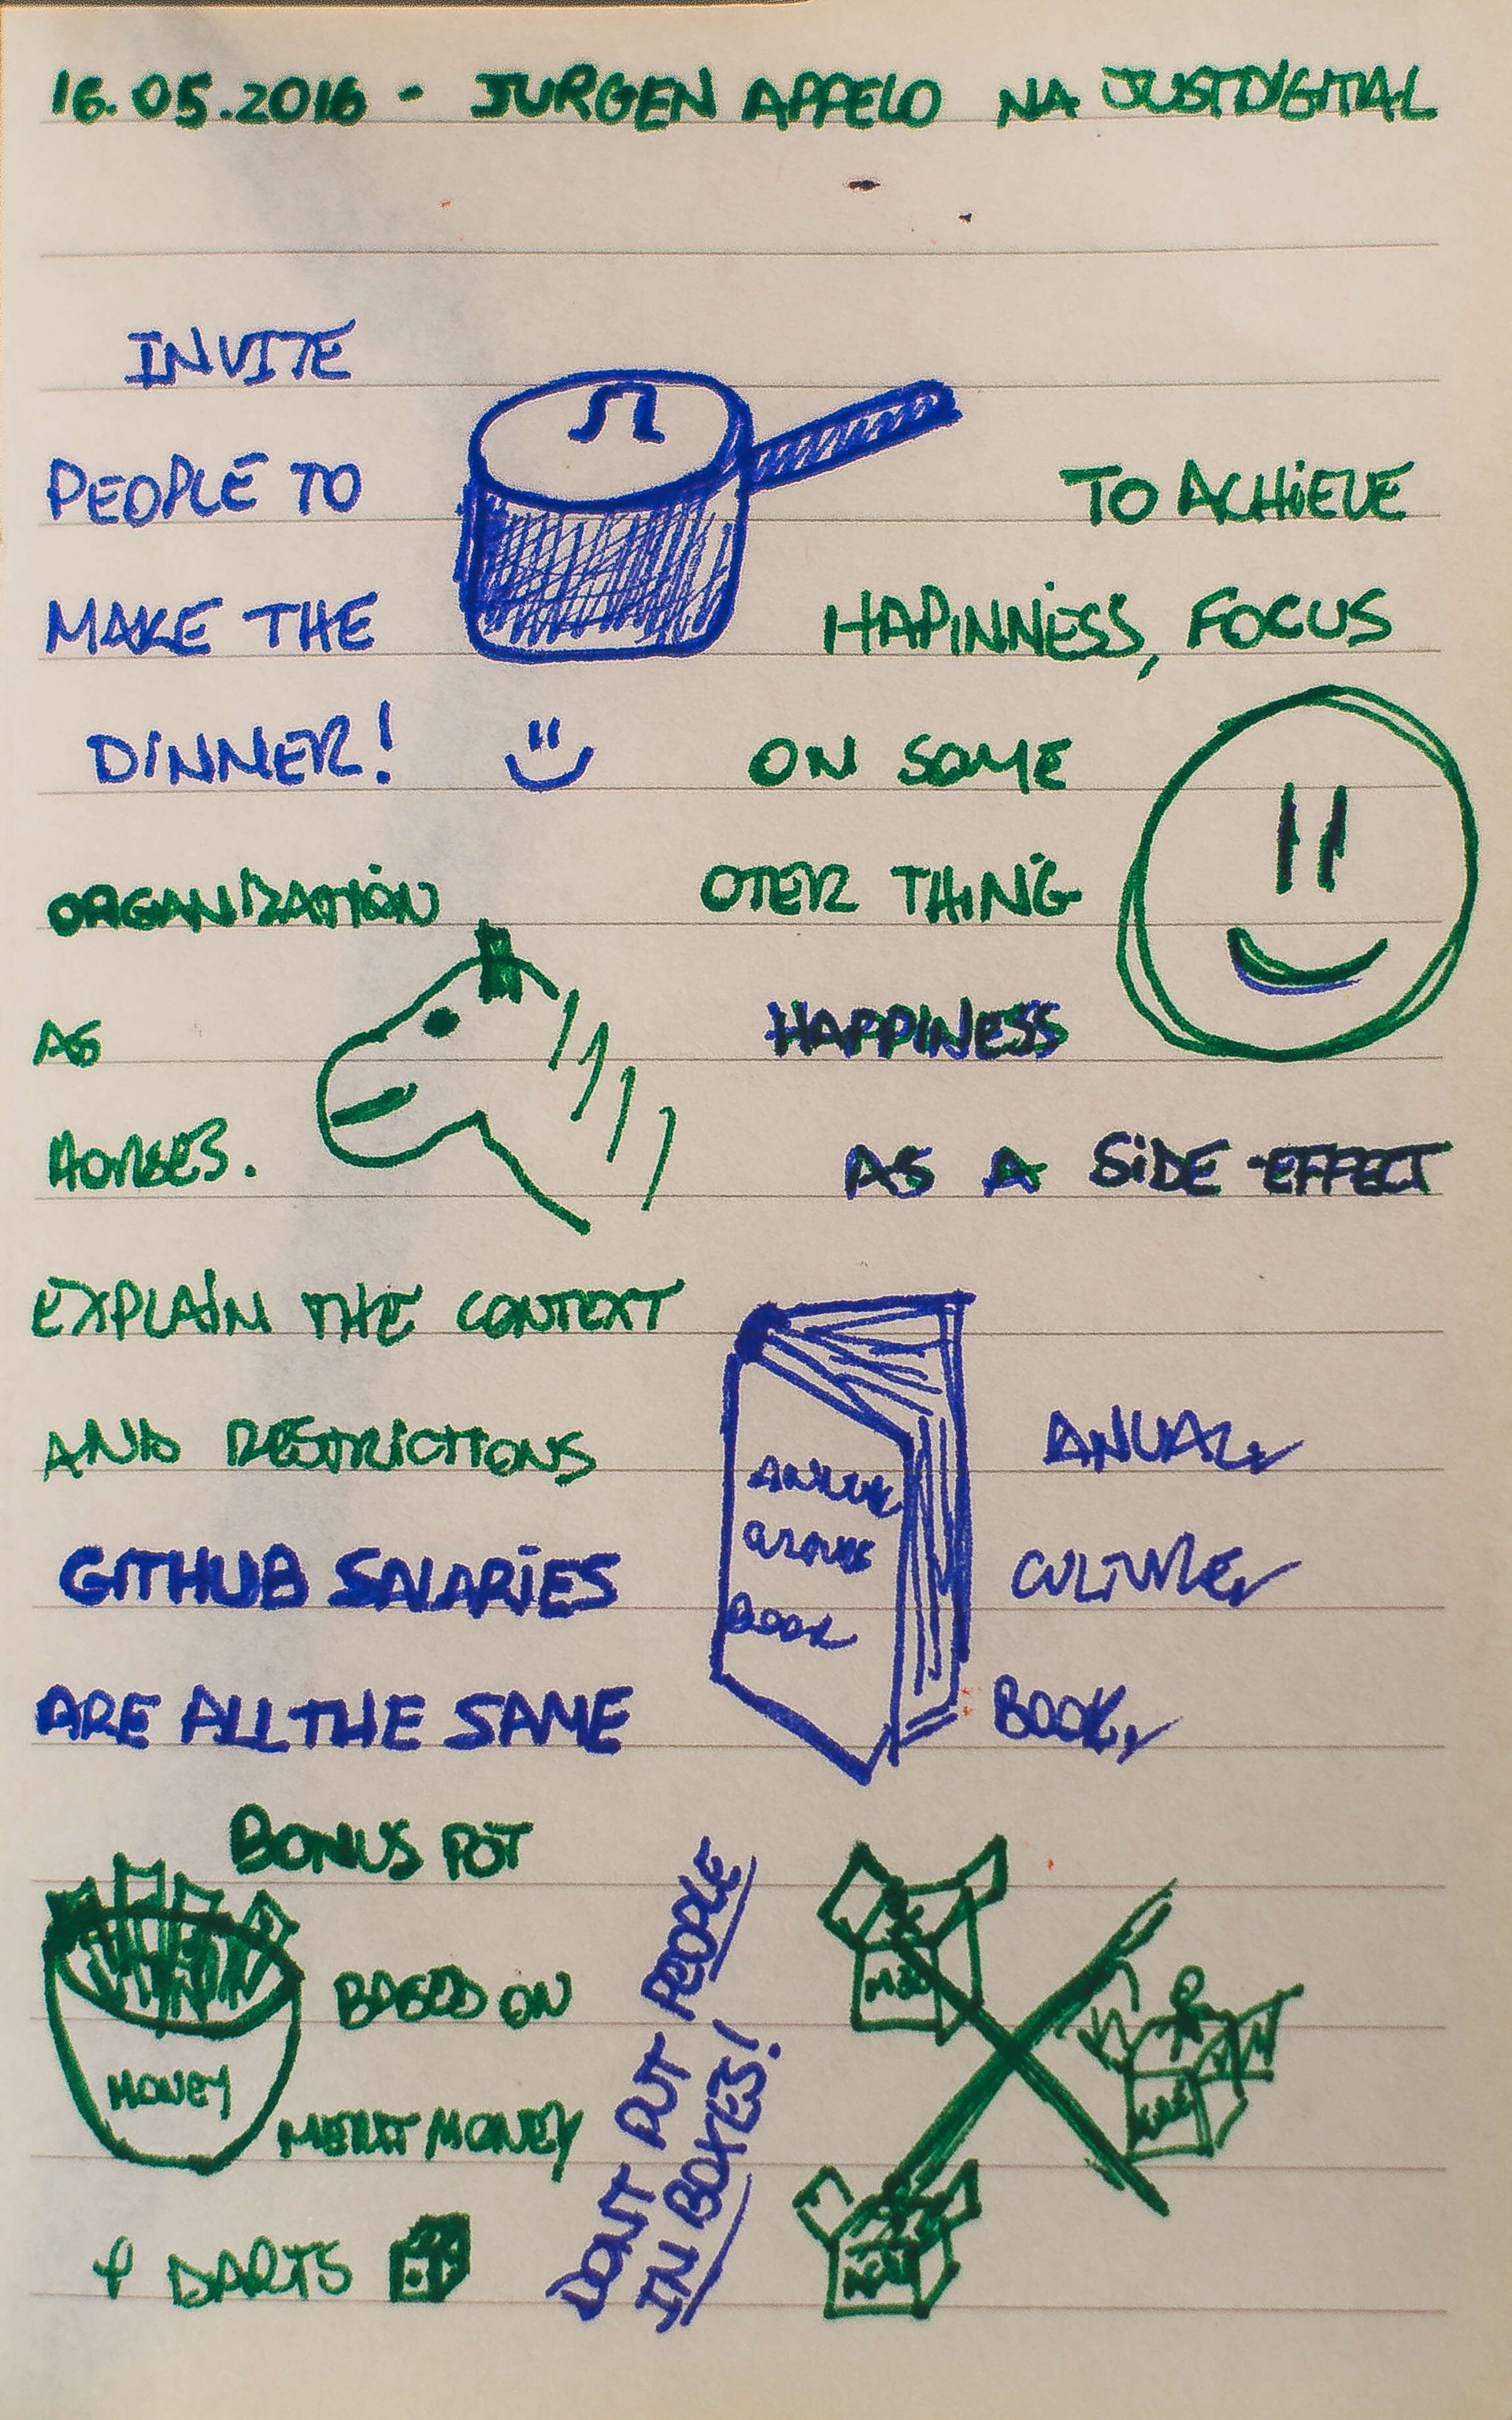 16.05.2016 - JURGEN APPELO NA JUSTDIGITAL
INVITE
PEOPLE TO
MAKE THE
DINNER!
TO ACHIEVE
HAPINNESS, FOCUS
ON SOME
OTER THING
HAPPINESS
AS A SIDE-EFFECT
ORGANIZATION
AS
HORSES.
EXPLAIN THE CONTEXT
AND RESTRICTIONS
GITHUB SALARIES
ARE ALL THE SAME
BOOK
ANUAL
CULTURE
BOOK
BONUS POT
BASED ON
MERIT MONEY
+ DARTS
MONEY
DONT PUT PEOPLE
IN BOXES!